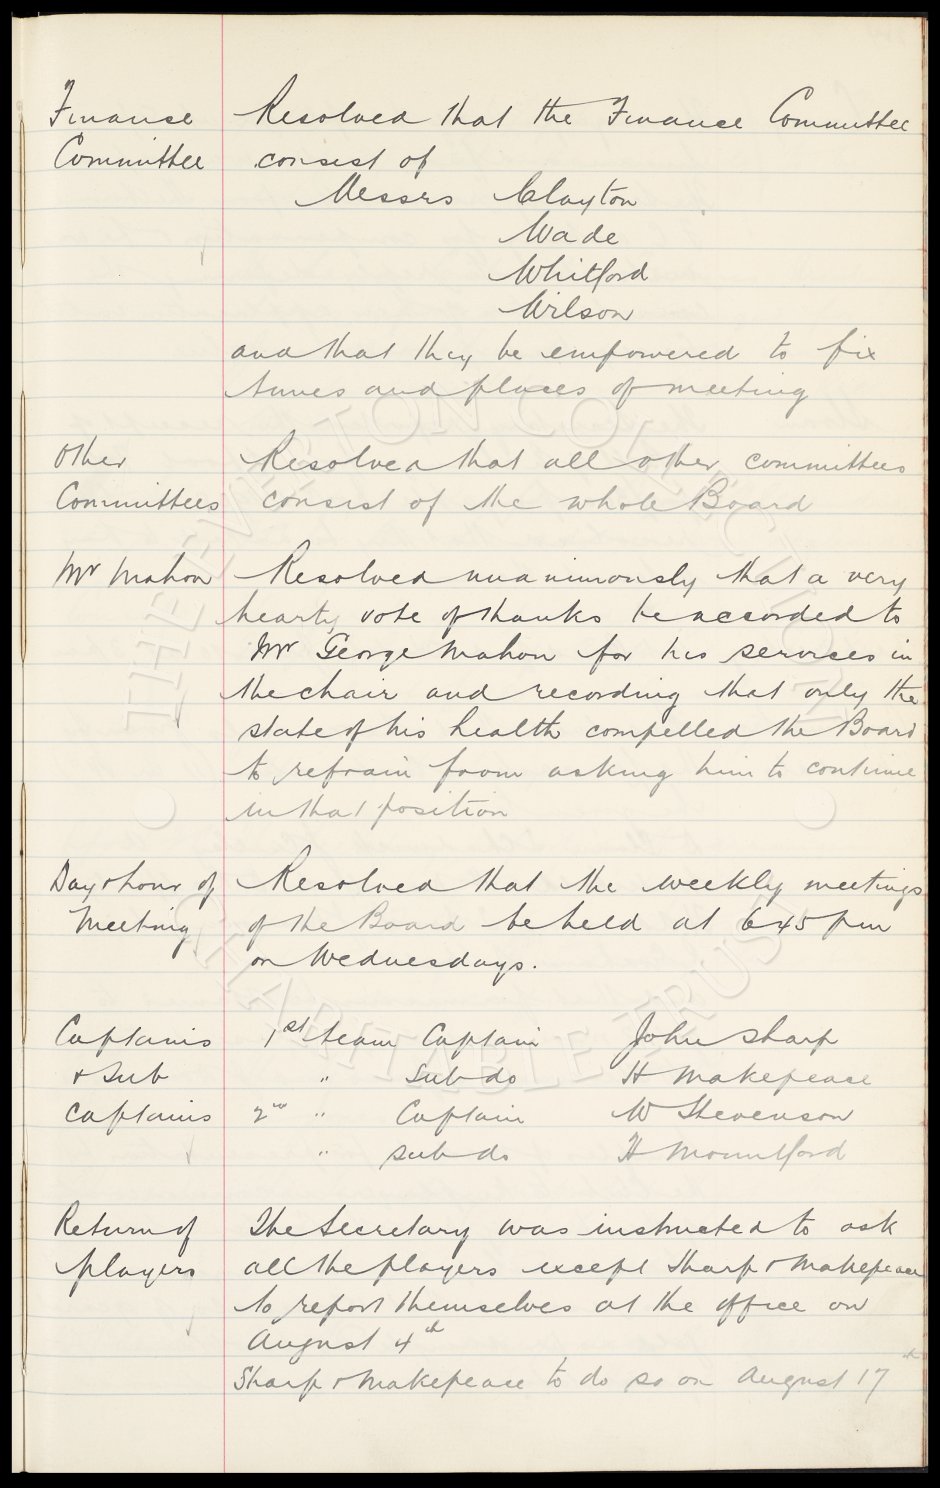 Finance Resolved that the Finance Committee
Committee consist of
Messrs Clayton
Wade
Whitford
Wilson
and that they be empowered to fix
times and places of meeting
Other Resolved that all other committees
Committees consist of the whole Board
Mr Mahon Resolved unanimously that a very
hearty vote of thanks be accorded to
Mr George Mahon for his services in
the chair and recording that only the
state of his health compelled the Board
to refrain from asking him to continue
in that position
Day & hour of Resolved that the weekly meetings
Meeting of the Board be held at 6 45 pm
on Wednesdays.
Captains 1st team Captain John Sharp
& Sub " Sub do H Makepeace
Captains 2nd " Captain W Stevenson
" Sub do H Mountford
Return of The Secretary was instructed to ask
players all the players except Sharp & Makepeace
to report themselves at the office on
August 4th
Sharp & Makepeace to do so on August 17th
THE EVERTON COLLECTION
CHARITABLE TRUST